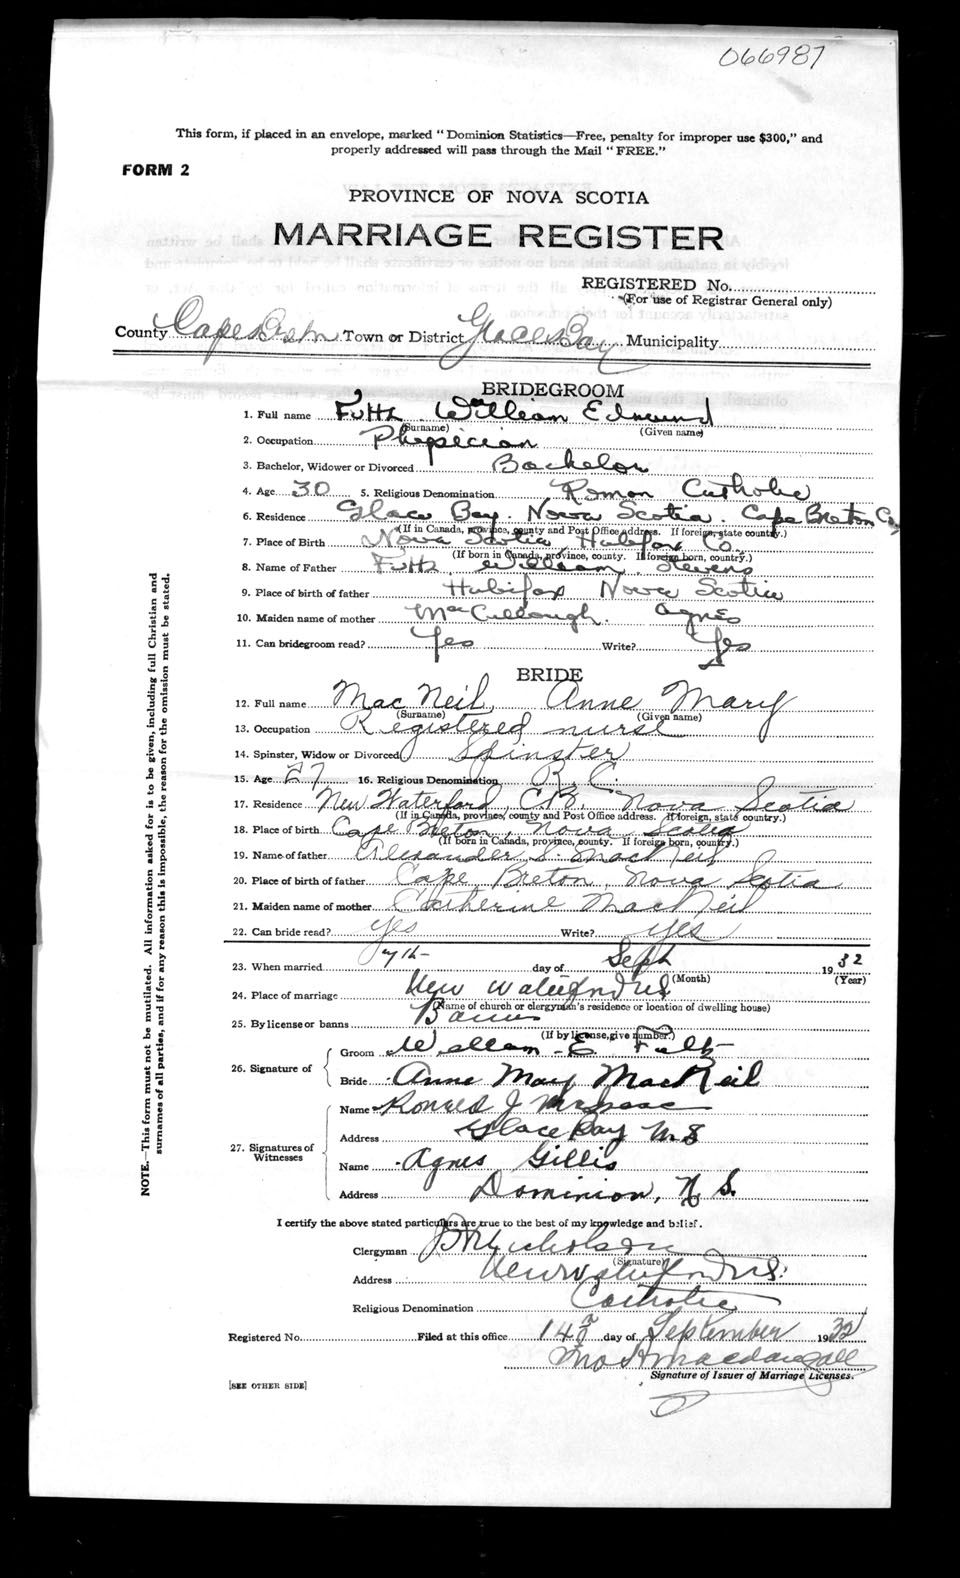 066987
This form, if placed in an envelope, marked "Dominion Statistics—Free, penalty for improper use $300," and
properly addressed will pass through the Mail "FREE."
FORM 2
PROVINCE OF NOVA SCOTIA
MARRIAGE REGISTER
REGISTERED No.
(For use of Registrar General only)
County Cape Breton Town or District Glace Bay Municipality
BRIDEGROOM
1. Full name Fultz William Edmund
(Surname) (Given name)
2. Occupation Physician
3. Bachelor, Widower or Divorced Bachelor
4. Age 30 5. Religious Denomination Roman Catholic
6. Residence Glace Bay. Nova Scotia. Cape Breton Co.
(If in Canada, province, county and Post Office address. If foreign, state country.)
7. Place of Birth Nova Scotia Halifax Co.
(If born in Canada, province, county. If foreign born, country.)
8. Name of Father Fultz William Stevens
9. Place of birth of father Halifax Nova Scotia
10. Maiden name of mother MacCullough. Agnes
11. Can bridegroom read? Yes Write? Yes
BRIDE
12. Full name MacNeil, Anne Mary
(Surname) (Given name)
13. Occupation Registered nurse
14. Spinster, Widow or Divorced Spinster
15. Age 27 16. Religious Denomination R. C.
17. Residence New Waterford, C.B. Nova Scotia
(If in Canada, province, county and Post Office address. If foreign, state country.)
18. Place of birth Cape Breton, Nova Scotia
(If born in Canada, province, county. If foreign born, country.)
19. Name of father Alexander S. MacNeil
20. Place of birth of father Cape Breton, Nova Scotia
21. Maiden name of mother Catherine MacNeil
22. Can bride read? yes Write? yes
23. When married 7th day of Sept 1932
(Month) (Year)
24. Place of marriage New Waterford N.S.
(Name of church or clergyman's residence or location of dwelling house)
25. By license or banns Banns
(If by license, give number.)
26. Signature of
Groom William E Fultz
Bride Anne Mary MacNeil
27. Signatures of Witnesses
Name Ronald J McIsaac
Address Glace Bay N S
Name Agnes Gillis
Address Dominion, N. S.
I certify the above stated particulars are true to the best of my knowledge and belief.
Clergyman Nicholson
(Signature)
Address New Waterford N.S.
Religious Denomination Catholic
Registered No. Filed at this office 14th day of September 1932
Jno A Macdougall
Signature of Issuer of Marriage Licenses.
[SEE OTHER SIDE]
NOTE.—This form must not be mutilated. All information asked for is to be given, including full Christian and
surnames of all parties, and if for any reason this is impossible, the reason for the omission must be stated.